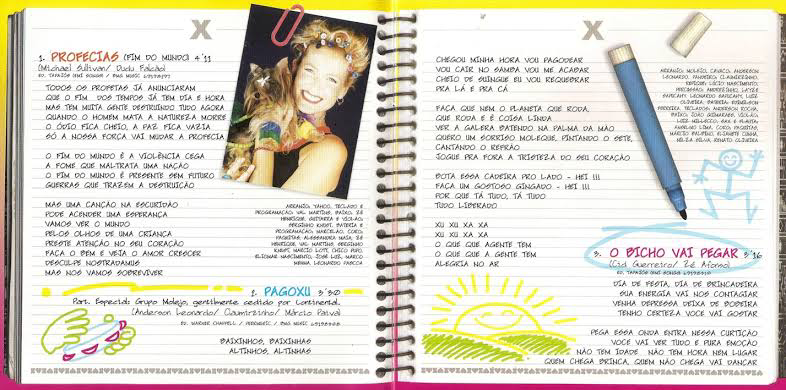 X
1. PROFECIAS (FIM DO MUNDO) 4'11
(Michael Sullivan/ Dudu Falcão)
TODOS OS PROFETAS JÁ ANUNCIARAM
QUE O FIM DOS TEMPOS JÁ TEM DIA E HORA
MAS TEM MUITA GENTE DESTRUINDO TUDO AGORA
QUANDO O HOMEM MATA A NATUREZA MORRE
O ÓDIO FICA CHEIO, A PAZ FICA VAZIA
SÓ A NOSSA FORÇA VAI MUDAR A PROFECIA
O FIM DO MUNDO É A VIOLÊNCIA CEGA
A FOME QUE MALTRATA UMA NAÇÃO
O FIM DO MUNDO É PRESENTE SEM FUTURO
GUERRAS QUE TRAZEM A DESTRUIÇÃO
MAS UMA CANÇÃO NA ESCURIDÃO
PODE ACENDER UMA ESPERANÇA
VAMOS VER O MUNDO
PELOS OLHOS DE UMA CRIANÇA
PRESTE ATENÇÃO NO SEU CORAÇÃO
FAÇA O BEM E VEJA O AMOR CRESCER
DESCULPE NOSTRADAMUS
MAS NÓS VAMOS SOBREVIVER
ARRANJO: YAHOO, TECLADO E
PROGRAMAÇÃO: VAL MARTINS, BAIXO: ZÉ
HENRIQUE, GUITARRA E VIOLÃO:
SERGINHO KNUST, BATERIA E
PROGRAMAÇÃO: MARCELÃO, CORO:
PAQUITAS, ALESSANDRA MAIA, ZÉ
HENRIQUE, VAL MARTINS, SERGINHO
KNUST, MARCIO LOTT, CHICO PUPO,
ELIOMAR NASCIMENTO, JOSÉ LUIZ, MARCO
MENNA, LEONARDO PASCOA
2. PAGOXU 3'30
Part. Especial: Grupo Molejo, gentilmente cedido por Continental.
(Anderson Leonardo/ Claumirzinho/ Márcio Paiva)
BAIXINHOS, BAIXINHAS
ALTINHOS, ALTINHAS
X
CHEGOU MINHA HORA VOU PAGODEAR
VOU CAIR NO SAMBA VOU ME ACABAR
CHEIO DE SUINGUE EU VOU REQUEBRAR
PRA LÁ E PRA CÁ
FAÇA QUE NEM O PLANETA QUE RODA,
QUE RODA E É COISA LINDA
VER A GALERA BATENDO NA PALMA DA MÃO
QUERO UM SORRISO MOLEQUE, PINTANDO O SETE,
CANTANDO O REFRÃO
JOGUE PRA FORA A TRISTEZA DO SEU CORAÇÃO
BOTA ESSA CADEIRA PRO LADO - HEI !!!
FAÇA UM GOSTOSO GINGADO - HEI !!!
POR QUE TÁ TUDO, TÁ TUDO
TUDO LIBERADO
XU XU XA XA
XU XU XA XA
O QUE QUE AGENTE TEM
O QUE QUE A GENTE TEM
ALEGRIA NO AR
ARRANJO: MOLEJO, CAVACO: ANDERSON
LEONARDO, PANDEIRO: CLAUMIRZINHO,
REPIQUE: LÚCIO NASCIMENTO,
3. O BICHO VAI PEGAR 3'16
(Cid Guerreiro/ Zé Afonso)
DIA DE FESTA, DIA DE BRINCADEIRA
SUA ENERGIA VAI NOS CONTAGIAR
VENHA DEPRESSA DEIXA DE BOBEIRA
TENHO CERTEZA VOCÊ VAI GOSTAR
PEGA ESSA ONDA ENTRA NESSA CURTIÇÃO
VOCÊ VAI VER TUDO É PURA EMOÇÃO
NÃO TEM IDADE NÃO TEM HORA NEM LUGAR
QUEM CHEGA BRINCA, QUEM NÃO CHEGA VAI DANÇAR